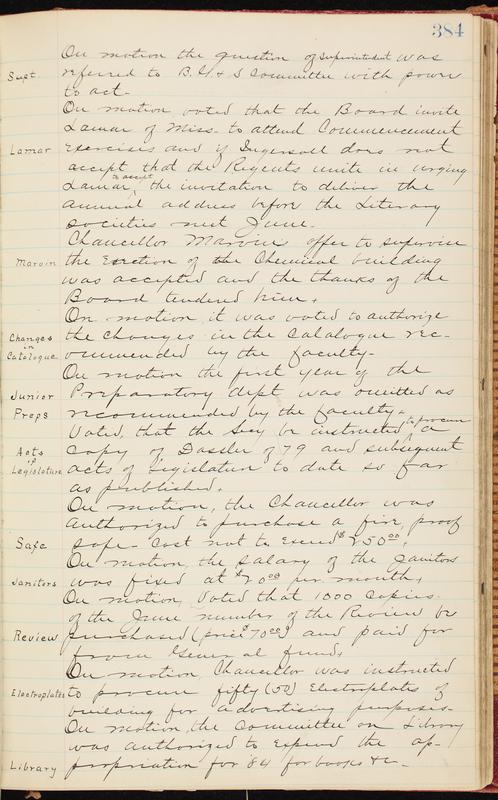 384
On motion the question of Superintendent was
Supt referred to B. G. & S Committee with power
to act.
On motion voted that the Board invite
Lamar of Miss. to attend Commencement
Lamar Exercises and if Ingersoll does not
accept that the Regents unite in urging
Lamar to accept the invitation to deliver the
annual address before the Literary
societies next June.
Chancellor Marvin's offer to supervise
Marvin the Erection of the Chemical building
was accepted and the thanks of the
Board tendered him.
On motion it was voted to authorize
Changes in Catalogue the changes in the Catalogue rec-
ommended by the faculty.
On motion the first year of the
Junior Preps Preparatory dept was omitted as
recommended by the faculty.
Voted, that the Secy be instructed to procure a
Acts of Legislature copy of Dassler of 79 and subsequent
acts of Legislature to date so far
as published.
On motion, the Chancellor was
authorized to purchase a fire proof
Safe safe. Cost not to Exceed $250.00.
On motion, the salary of the janitors
Janitors was fixed at $20.00 per month.
On motion, Voted that 1000 Copies
of the June number of the Review be
Review purchased (price $70.00) and paid for
from General fund.
On motion, Chancellor was instructed
Electroplates to procure fifty (50) Electroplates of
building for advertising purposes.
On motion, the Committee on Library
was authorized to Expend the ap-
Library propriation for 84 for books &c.